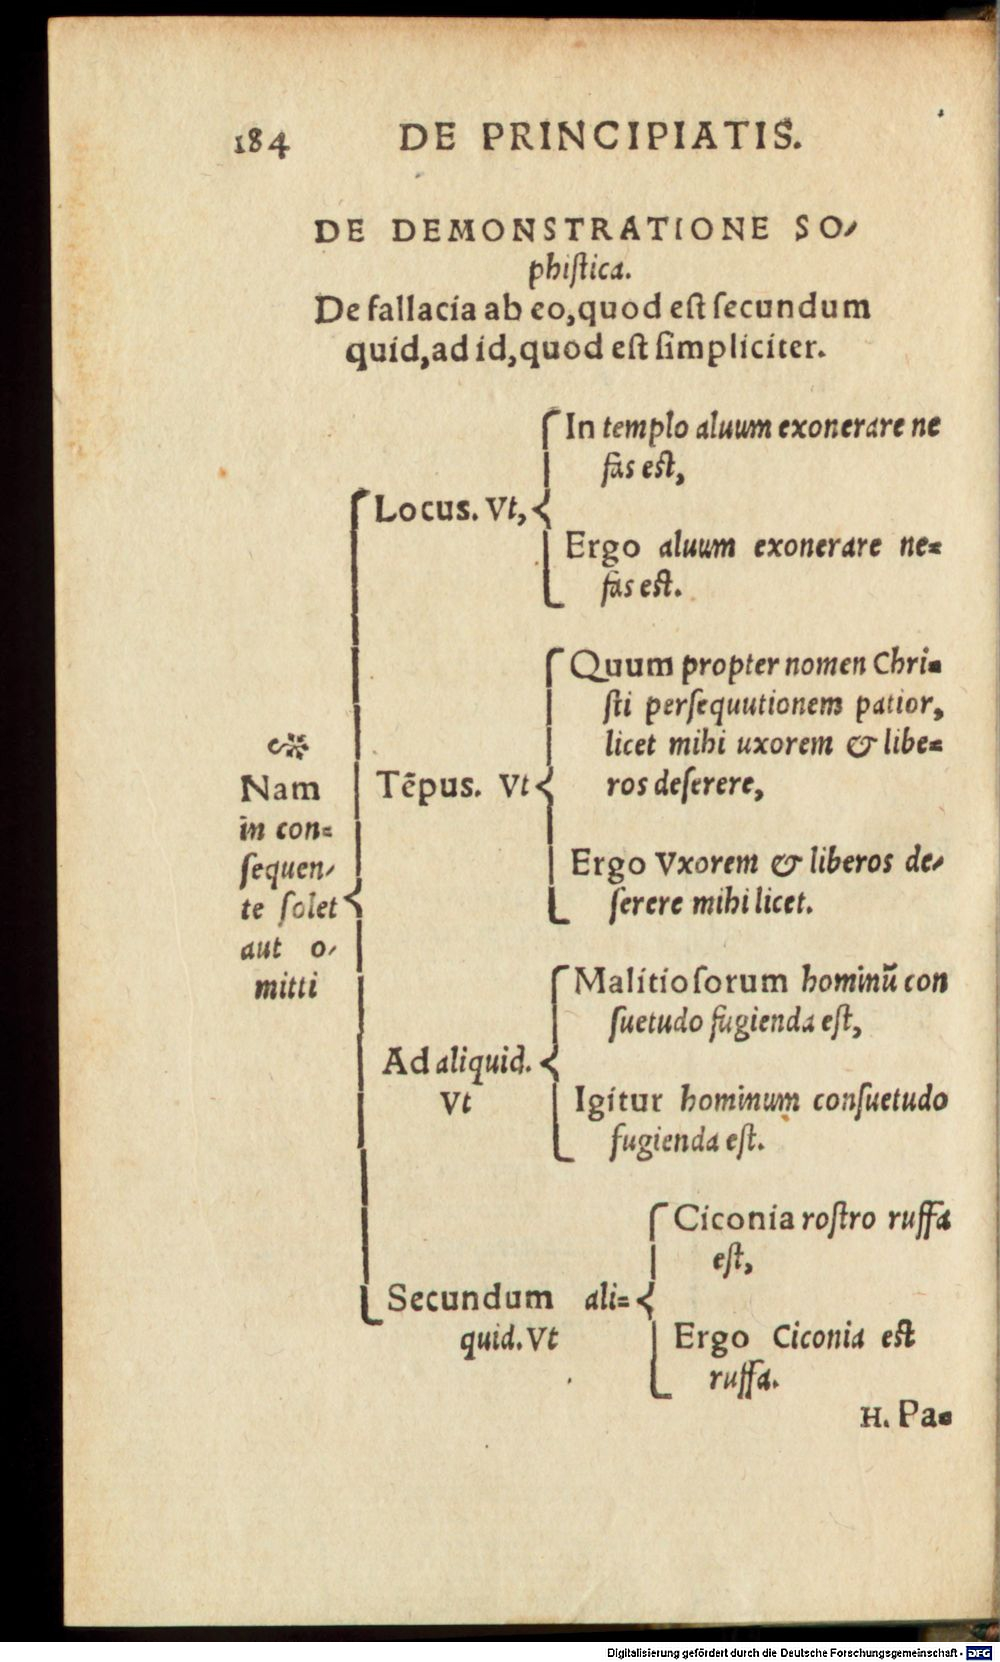 184 DE PRINCIPIATIS.
DE DEMONSTRATIONE SO⸗
phiſtica.
De fallacia ab eo, quod eſt ſecundum
quid, ad id, quod eſt ſimpliciter.
Nam
in con⸗
ſequen⸗
te ſolet
aut o⸗
mitti
Locus. Vt,
In templo aluum exonerare ne
fas eſt,
Ergo aluum exonerare ne⸗
fas eſt.
Tēpus. Vt
Quum propter nomen Chri⸗
ſti perſequutionem patior,
licet mihi uxorem & libe⸗
ros deſerere,
Ergo Vxorem & liberos de⸗
ſerere mihi licet.
Ad aliquid.
Vt
Malitioſorum hominū con
ſuetudo fugienda eſt,
Igitur hominum conſuetudo
fugienda eſt.
Secundum ali⸗
quid. Vt
Ciconia roſtro ruffa
eſt,
Ergo Ciconia eſt
ruffa.
H. Pa⸗
Digitalisierung gefördert durch die Deutsche Forschungsgemeinschaft - DFG